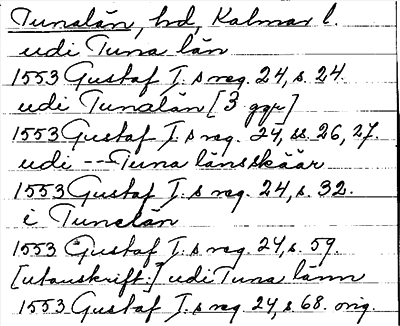 Tunalän, hd, Kalmar l.
udi Tuna län
1553 Gustaf I:s reg. 24, s. 24.
udi Tunalän [3 ggr]
1553 Gustaf I:s reg. 24, ss. 26, 27.
udi -- Tuna länsskäär
1553 Gustaf I:s reg. 24, s. 32.
i Tunelän
1553 Gustaf I:s reg. 24, s. 59.
[utanskrift:] udi Tuna länn
1553 Gustaf I:s reg. 24, s 68. orig.